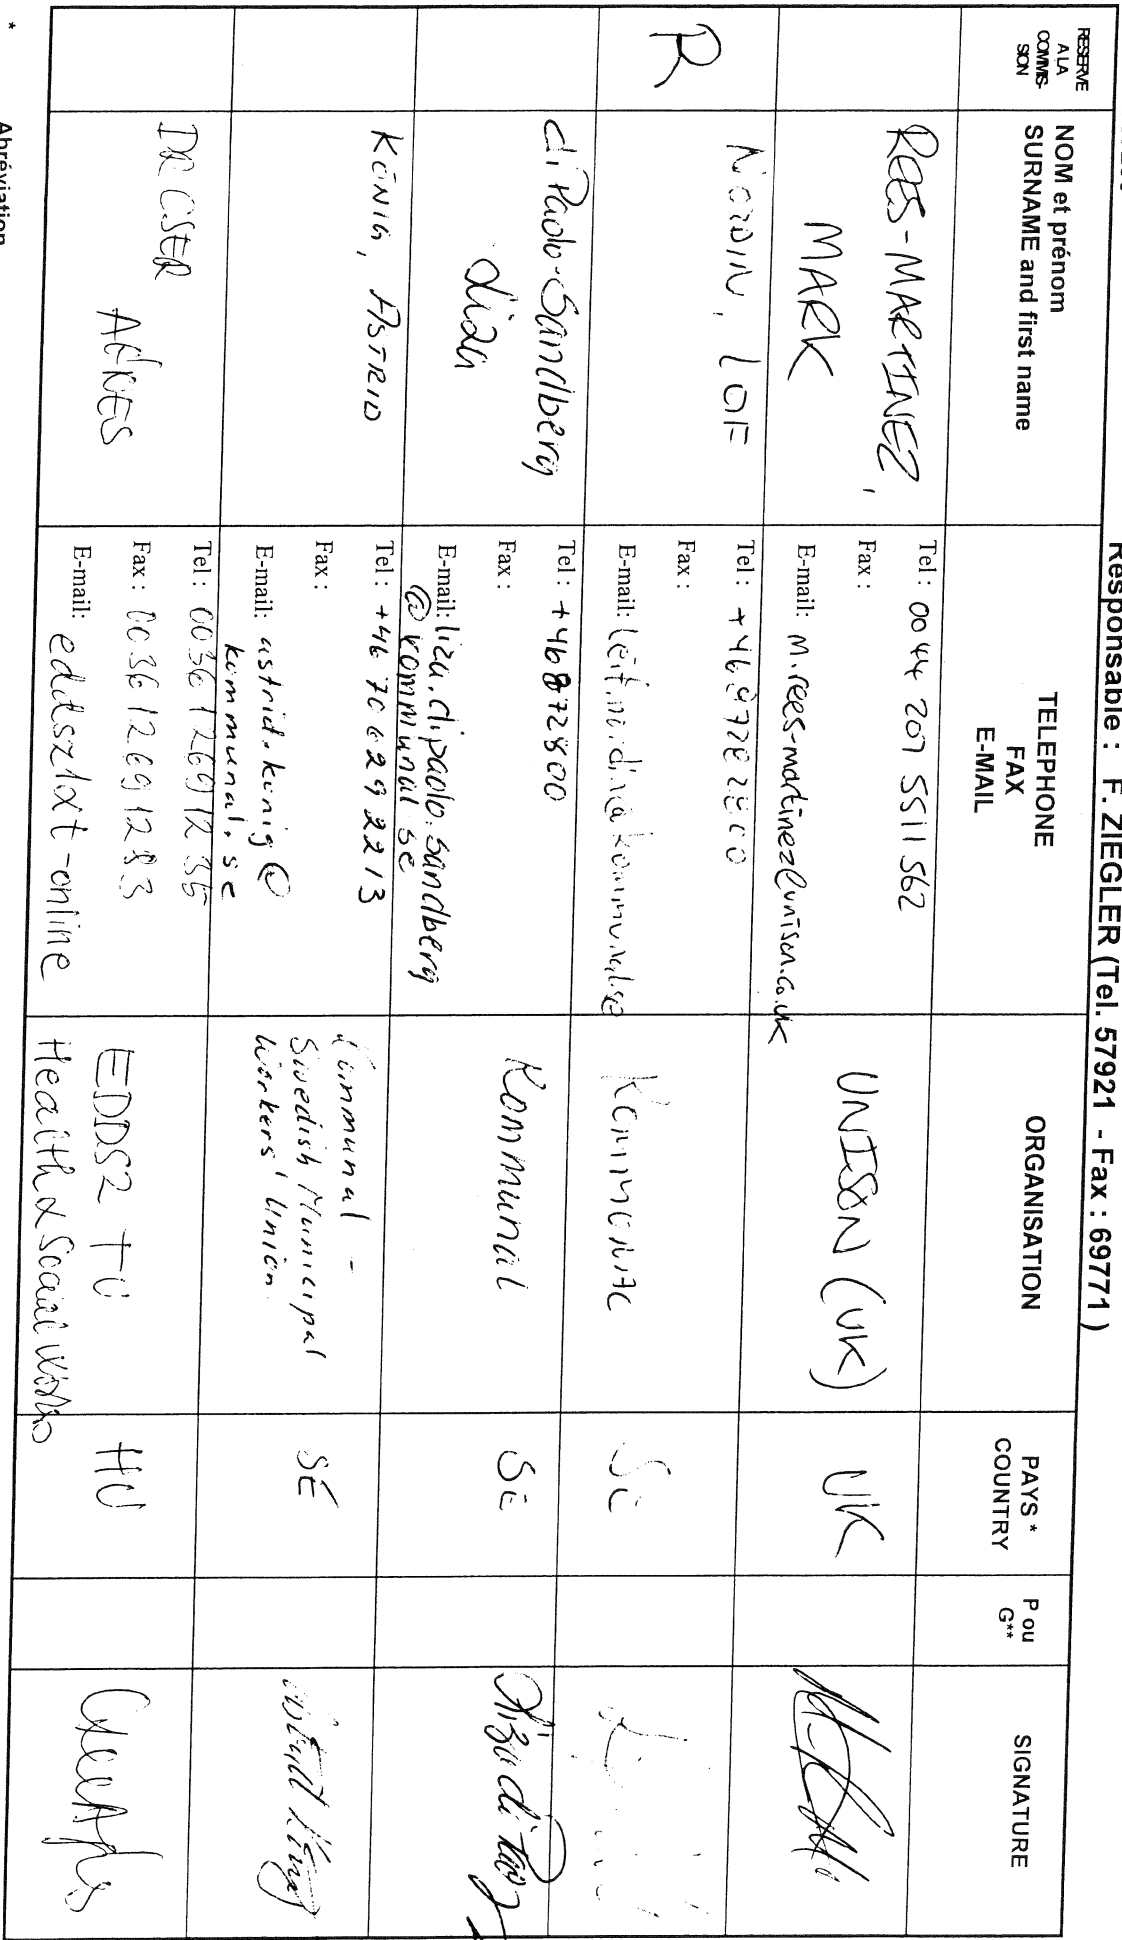 Responsable : F. ZIEGLER (Tel. 57921 - Fax : 69771 )
RESERVE
A LA
COMMIS-
SION
NOM et prénom
SURNAME and first name
TELEPHONE
FAX
E-MAIL
ORGANISATION
PAYS *
COUNTRY
P ou
G**
SIGNATURE
REES-MARTINEZ,
MARK
Tel : 0044 207 5511 562
Fax :
E-mail: m.rees-martinez@unison.co.uk
UNISON (UK)
UK
R
NORDIN,
Tel :
Fax :
E-mail:
KOMMUNAL
SE
di Paolo-Sandberg
Liza
Tel : +46872800
Fax :
E-mail: liza.dipaolo.sandberg
@kommunal.se
Kommunal
SE
KÖNIG, ASTRID
Tel : +46 70 629 2213
Fax :
E-mail: astrid.konig@
kommunal.se
Kommunal -
Swedish Municipal
Workers' Union
SE
DR CSER
ÁGNES
Tel : 0036 1 269 12 35
Fax : 0036 1 269 12 83
E-mail:
EDDSZ TU
Health & Social
HU
*
Abréviation